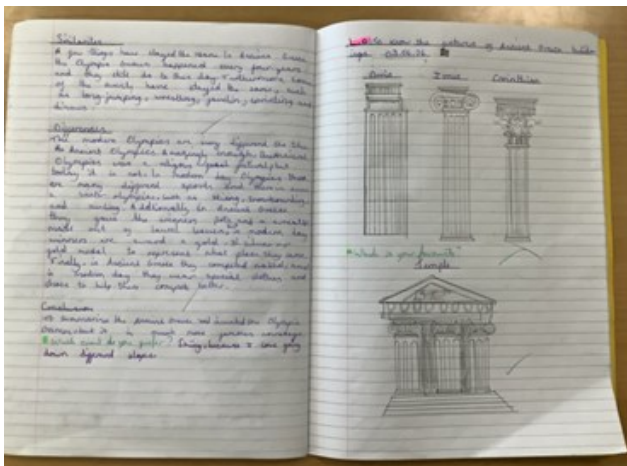 Similarities
A few things have stayed the same. In Ancient Greece
the Olympic Games happened every four years
and they still do to this day. Furthermore, some
of the events have stayed the same, such
as long jumping, wrestling, javelin, and
discus.
Differences
The modern Olympics are very different to the
Ancient Olympics.
Olympics was a religious festival, but
today it is not. In modern day Olympics there
are many different sports and there is even
a winter olympics, such as skiing, snowboarding
and. Additionally, in Ancient Greece
they gave the winners and a wreath
made out of laurel leaves, but in modern day
winners are award a gold, silver or
medal to represent what place they came.
Finally, in Ancient Greece they competed naked, and
in modern day they wear special clothes and
shoes to help them compete better.
Conclusion
To summarise the Ancient Greeks had invented the Olympic
Games, but it is much more nowadays.
Which event do you prefer? Skiing, because I love going
down different slopes.
L.O. To know the of Ancient Greek
Doric Ionic Corinthian
Which is your favourite?
Temple